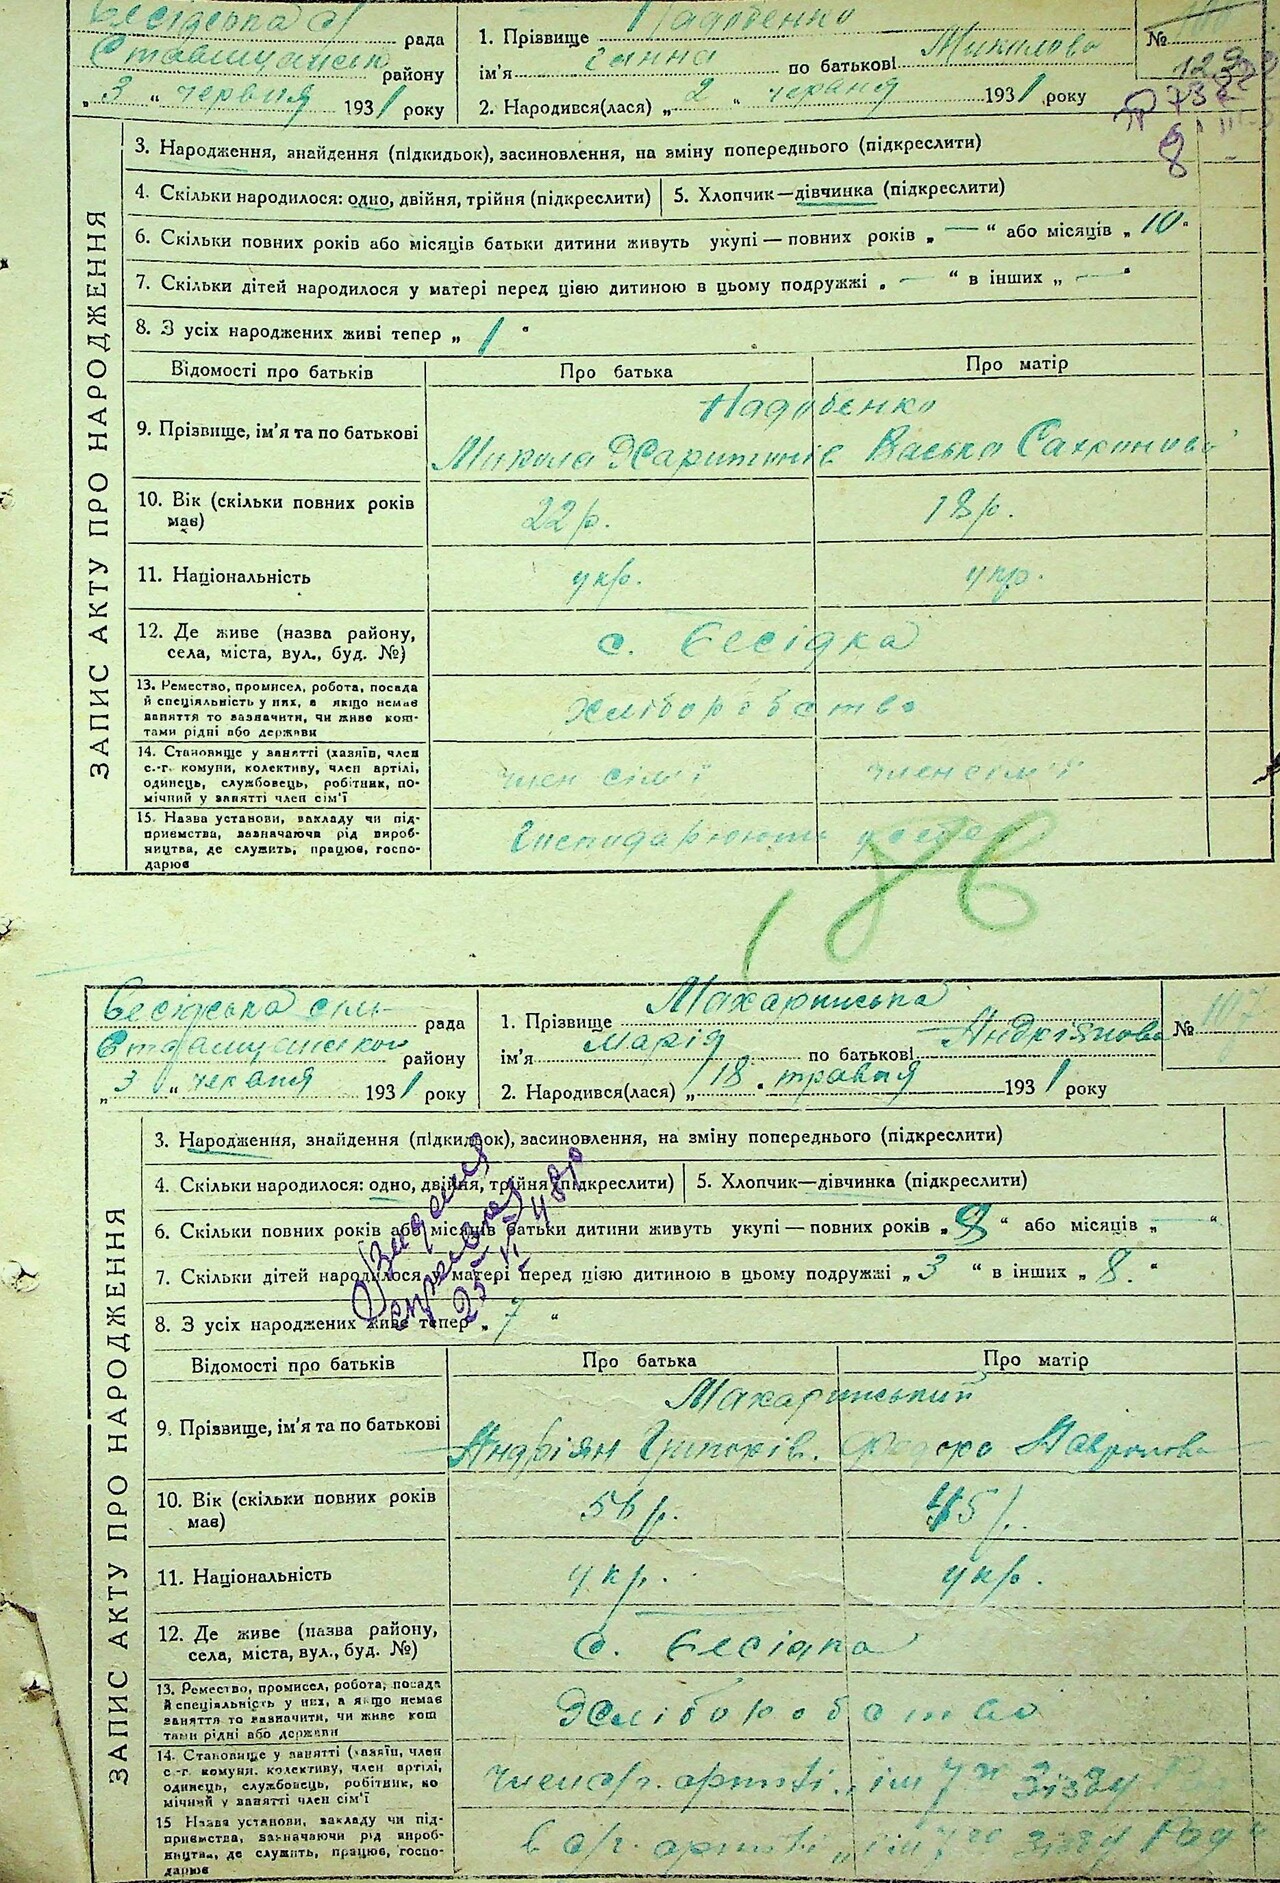 Бесідська сл рада
Ставищансько району
„ 3 “ червня 1931 року
1. Прізвище Надобенко
ім'я Ганна по батькові Миколова
2. Народився(лася) „ 2 “ червня 1931 року
№
129
8
ЗАПИС АКТУ ПРО НАРОДЖЕННЯ
3. Народження, знайдення (підкидьок), засиновлення, на зміну попереднього (підкреслити)
4. Скільки народилося: одно, двійня, трійня (підкреслити)
5. Хлопчик—дівчинка (підкреслити)
6. Скільки повних років або місяців батьки дитини живуть укупі — повних років „ — “ або місяців „ 10 “
7. Скільки дітей народилося у матері перед цією дитиною в цьому подружжі „ — “ в інших „ — “
8. З усіх народжених живі тепер „ 1 “
Відомості про батьків Про батька Про матір
Надобенко
9. Прізвище, ім'я та по батькові Микола Харитонів Васька Сахронова
10. Вік (скільки повних років має) 22 р. 18 р.
11. Національність укр. укр.
12. Де живе (назва району, села, міста, вул., буд. №) с. Бесідка
13. Ремество, промисел, робота, посада
й спеціяльність у них, а якщо немає
заняття то зазначити, чи живе кош-
тами рідні або держави
Хліборобство
14. Становище у занятті (хазяїн, член
с.-г. комуни, колективу, член артілі,
одинець, службовець, робітник, по-
мічний у занятті член сім'ї
член сім'ї член сім'ї
15. Назва установи, закладу чи під-
приємства, зазначаючи рід вироб-
ництва, де служить, працює, госпо-
дарює
Господарюють у себе
186
Бесідська сіль рада
Ставищенсько району
„ 3 “ червня 1931 року
1. Прізвище Махаринська
ім'я Марія по батькові Андріянова
2. Народився(лася) „ 18 “ травня 1931 року
№ 107
ЗАПИС АКТУ ПРО НАРОДЖЕННЯ
3. Народження, знайдення (підкидьок), засиновлення, на зміну попереднього (підкреслити)
4. Скільки народилося: одно, двійня, трійня (підкреслити)
5. Хлопчик—дівчинка (підкреслити)
6. Скільки повних років або місяців батьки дитини живуть укупі — повних років „ 8 “ або місяців „ — “
7. Скільки дітей народилося у матері перед цією дитиною в цьому подружжі „ 3 “ в інших „ 8. “
8. З усіх народжених живе тепер „ 7 “
Відомості про батьків Про батька Про матір
Махаринський
9. Прізвище, ім'я та по батькові Андріян Григорів. Федора Лавронова
10. Вік (скільки повних років має) 56 р. 45 р.
11. Національність укр. укр.
12. Де живе (назва району, села, міста, вул., буд. №) с. Бесідка
13. Ремество, промисел, робота, посада
й спеціяльність у них, а якщо немає
заняття то зазначити, чи живе кош
тами рідні або держави
Хліборобство
14. Становище у занятті (хазяїн, член
с.-г. комуни, колективу, член артілі,
одинець, службовець, робітник, по
мічний у занятті член сім'ї
член с/г. артілі „ім 7го зїзду Рад
15 Назва установи, закладу чи під-
приємства, зазначаючи рід вироб-
ництва, де служить, працює, госпо-
дарює
в с/г. артілі „ім 7го зїзду Рад“